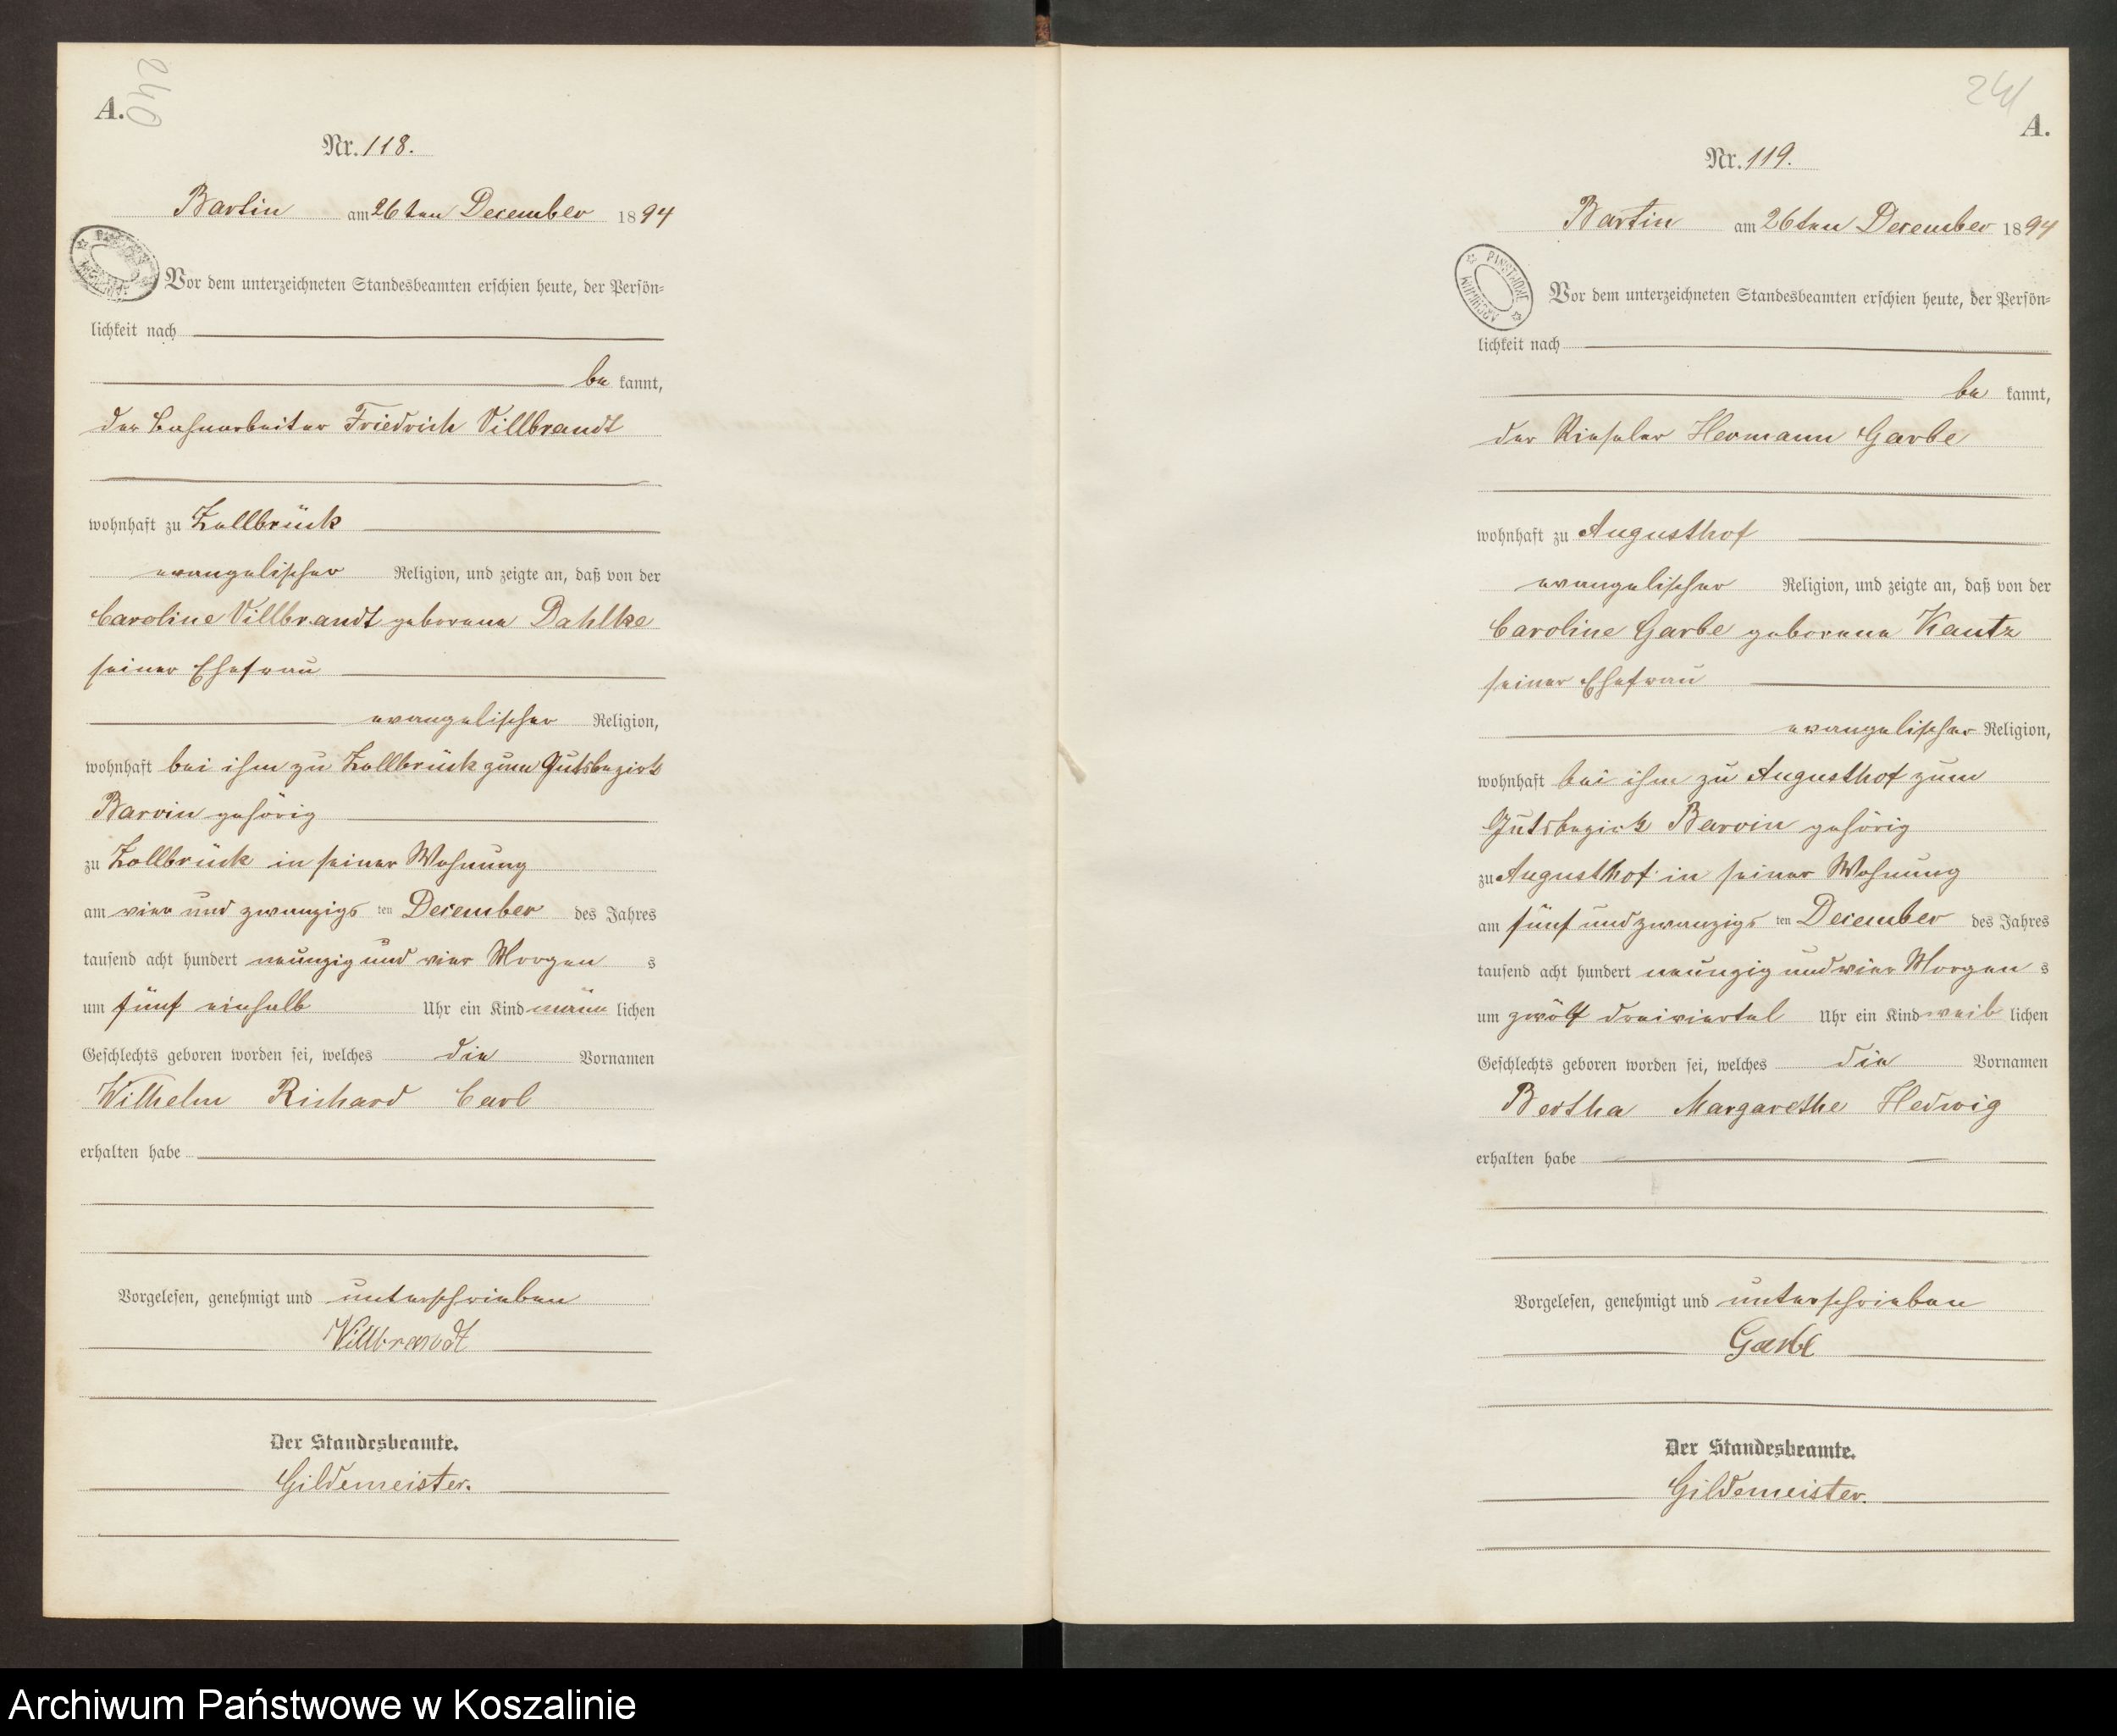 240
A.
Nr. 118.
Bartin am 26ten December 1894
Vor dem unterzeichneten Standesbeamten erschien heute, der Persön-
lichkeit nach
be kannt,
der Bahnarbeiter Friedrich Villbrandt
wohnhaft zu Zollbrück
evangelischer Religion, und zeigte an, daß von der
Caroline Villbrandt geborene Dahlke
seiner Ehefrau
evangelischer Religion,
wohnhaft bei ihm zu Zollbrück zum Gutsbezirk
Barvin gehörig
zu Zollbrück in seiner Wohnung
am vier und zwanzigs ten December des Jahres
tausend acht hundert neunzig und vier Morgen s
um fünf einhalb Uhr ein Kind männ lichen
Geschlechts geboren worden sei, welches die Vornamen
Wilhelm Richard Carl
erhalten habe
Vorgelesen, genehmigt und unterschrieben
Villbrandt
Der Standesbeamte.
Gildemeister.
241
A.
Nr. 119.
Bartin am 26ten December 1894
PAŃSTWOWE ARCHIWUM
Vor dem unterzeichneten Standesbeamten erschien heute, der Persön-
lichkeit nach
be kannt,
der Rieseler Hermann Garbe
wohnhaft zu Augusthof
evangelischer Religion, und zeigte an, daß von der
Caroline Garbe geborene Kautz
seiner Ehefrau
evangelischer Religion,
wohnhaft bei ihm zu Augusthof zum
Gutsbezirk Barvin gehörig
zu Augusthof in seiner Wohnung
am fünf und zwanzigs ten December des Jahres
tausend acht hundert neunzig und vier Morgen s
um zwölf dreiviertel Uhr ein Kind weib lichen
Geschlechts geboren worden sei, welches die Vornamen
Bertha Margarethe Hedwig
erhalten habe
Vorgelesen, genehmigt und unterschrieben
Garbe
Der Standesbeamte.
Gildemeister.
Archiwum Państwowe w Koszalinie